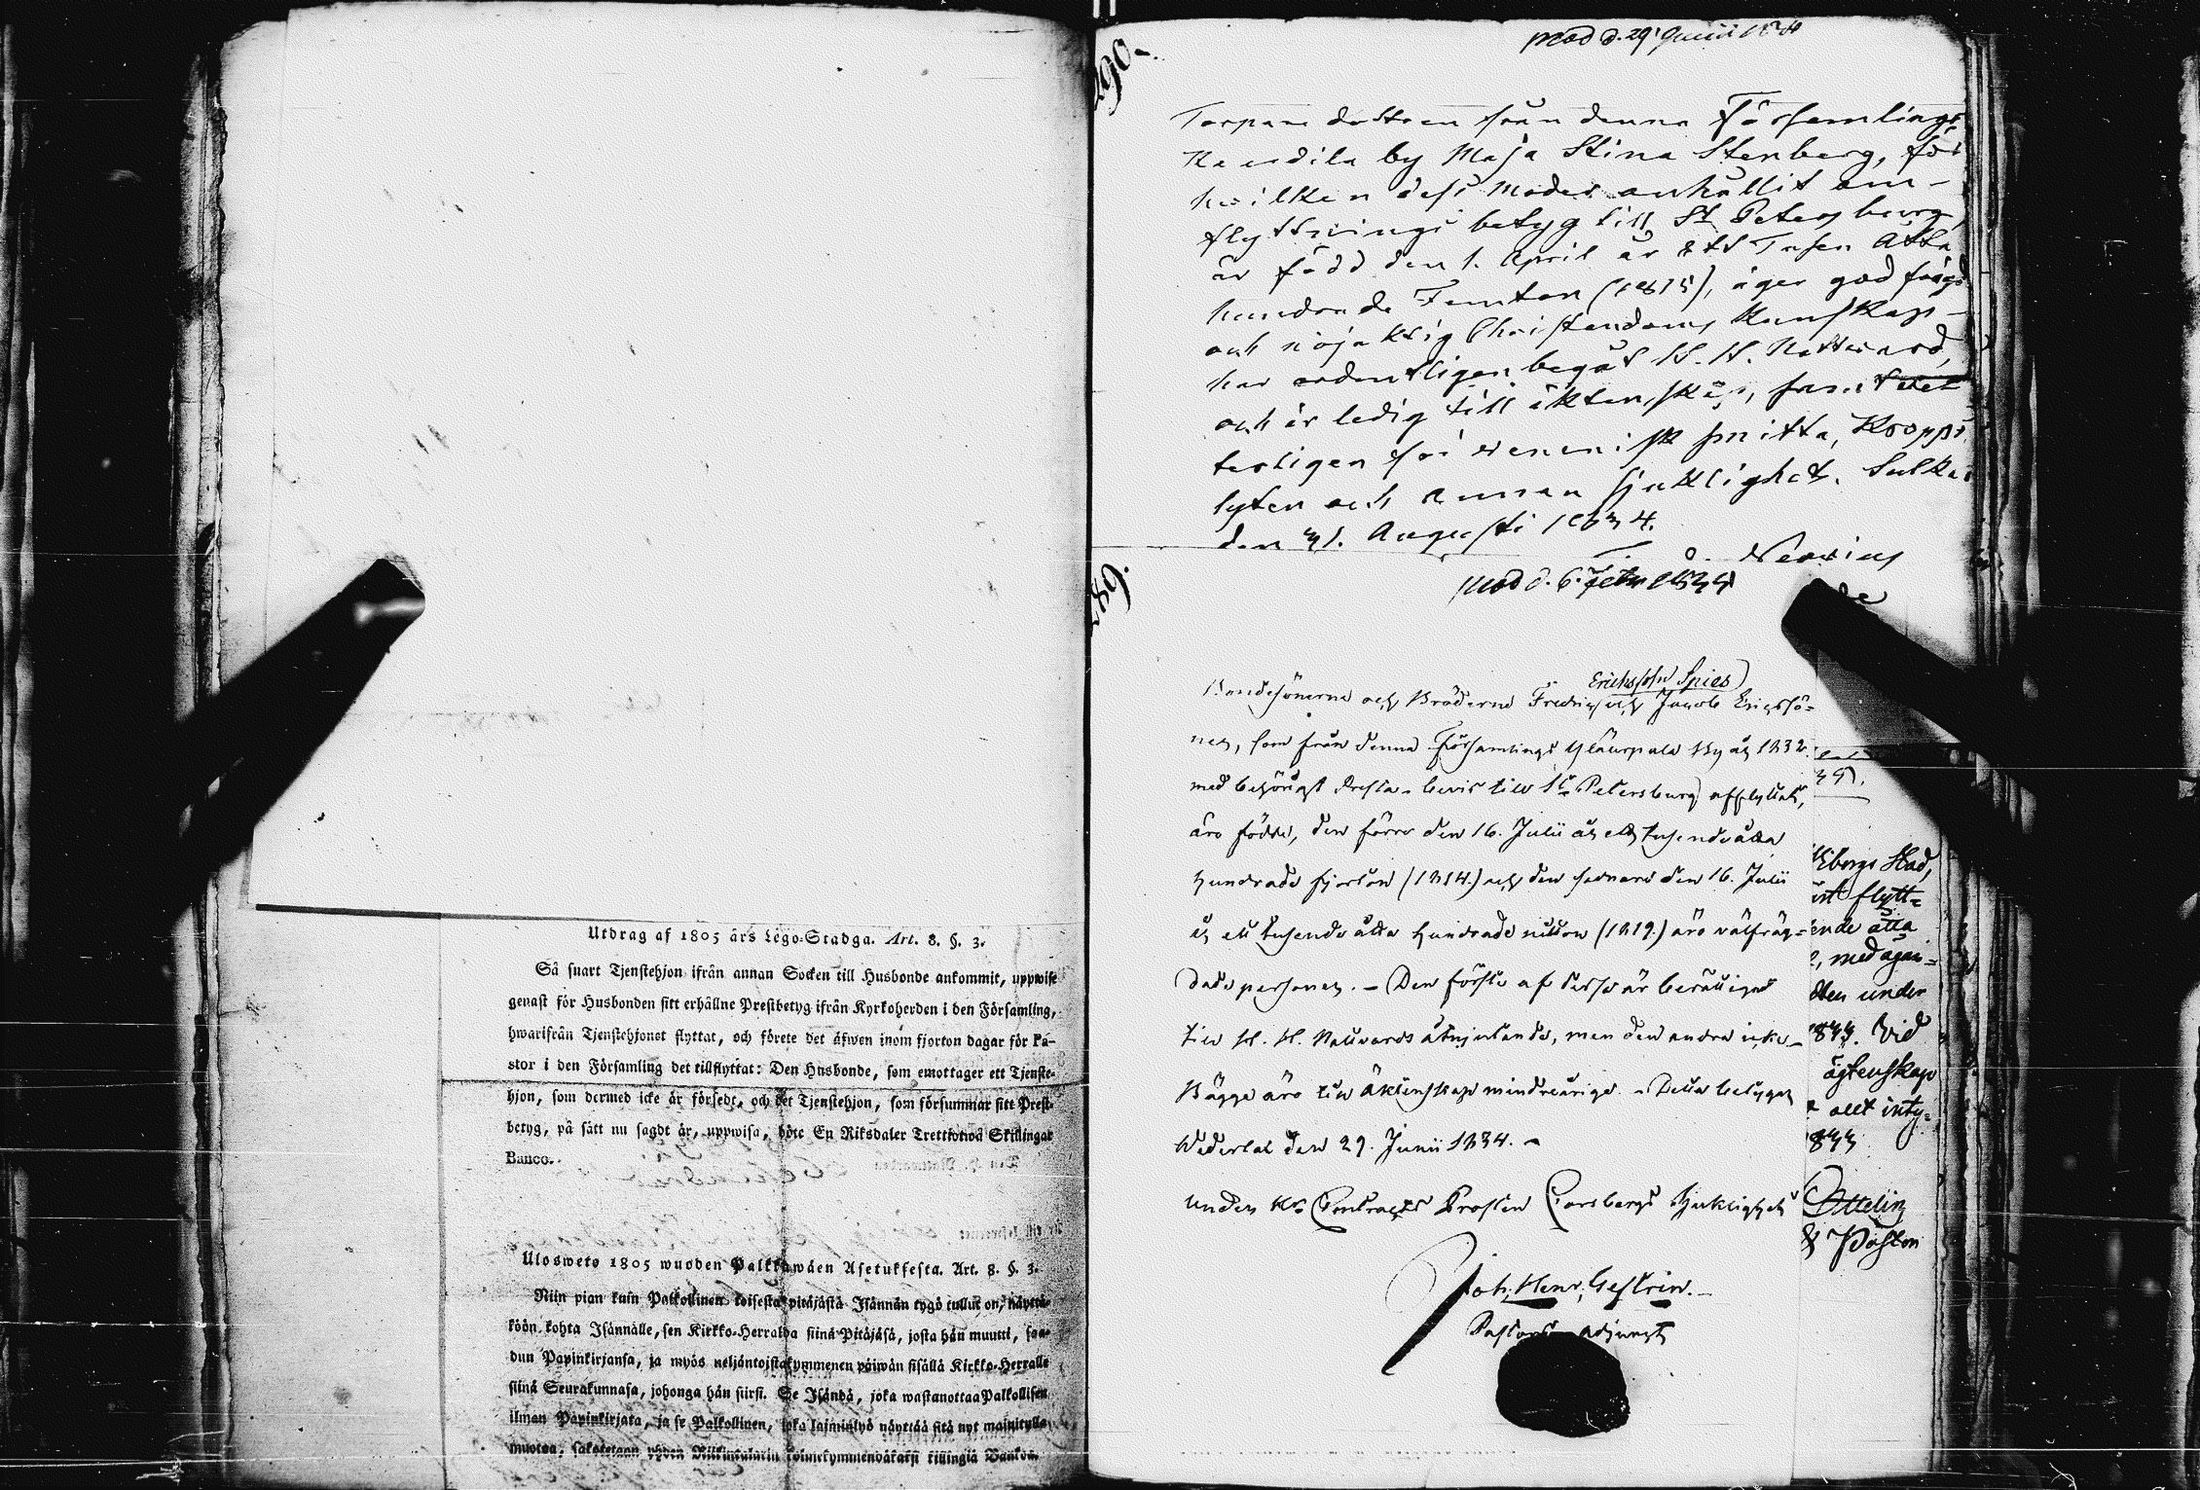 Utdrag af 1805 års Lego-Stadga. Art. 8. §. 3.
Så snart Tjenstehjon ifrån annan Socken till Husbonde ankommit, uppwise
genast för Husbonden sitt erhållne Prestbetyg ifrån Kyrkoherden i den Församling,
hwarifrån Tjenstehjonet flyttat, och förete det äfwen inom fjorton dagar för Pa-
stor i den Församling det tillflyttat: Den Husbonde, som emottager ett Tjenste-
hjon, som dermed icke är försedt, och det Tjenstehjon, som försummar sitt Prest-
betyg, på sätt nu sagdt är, uppwisa, böte En Riksdaler Trettiotwå Skillingar
Banco.
Ulosweto 1805 wuoden Palkkawäen Asetuksesta. Art. 8. §. 3.
Niin pian kuin Palkollinen toisesta pitäjästä Isännän tygö tullut on, näyttä-
köön kohta Isännälle, sen Kirkko-Herralda siinä Pitäjäsä, josta hän muutti, saa-
dun Papinkirjansa, ja myös neljäntoistakymmenen päiwän sisällä Kirkko-Herralle
siinä Seurakunnasa, johonga hän siirsi. Se Isändä, joka wastanottaa Palkollisen
ilman Papinkirjata, ja se Palkollinen, joka laiminlyö näyttää sitä nyt mainitulla
muotoa, sakotetaan yhden Riikintalarin kolmekymmendäkaksi killingiä Bankoa.
290.
prod d. 29 Junii 1834
Torpare dottren från denna Församlings
by Maja Stina Stenberg, för
hvilken dess moder anhållit om
flyttnings betyg till St Petersburg,
är född den 1. April år Ett Tusen Åtta
hundrade Femton (1815), äger god frägd
och nöjaktig Christendoms kunskap
har ordentligen begåt H. H. Nattvard,
och är ledig till äktenskap, samt
för venerisk smitta, Kropps
lyten och annan sjuklighet. Sulkava
den 31. Augusti 1834.
Neovius
prod d. 6. 1834
Erichssön Spies
Bondesönerna och Bröderne Fredric och Jacob Ericssö-
ner, som från denna Församlings By år 1832
med behörigt Presta-bevis till St Petersburg afflyttat,
äro födde, den förre den 16. Julii år ett tusende åtta
hundrade fjorton (1814.) och den sednare den 16. Julii
år ett tusende åtta hundrade nitton (1819.) äro välfräg-
dade personer. – Den förste af desse är berättigad
till H. H. Nattvards åtnjutande, men den andra icke –
Bägge äro till Äktenskap mindreårige. – Detta betygar
Wederlax den 29. Junii 1834. –
under Hr Contracts Prosten Forsbergs sjuklighet
Joh. Henr. Gestrin.
Pastors adjunct
Wiborgs Stad,
flytt=
ende åtta
med ägan=
under
1833. Vid
ägtenskap
allt inty=
1833
Ottelin
Pastor